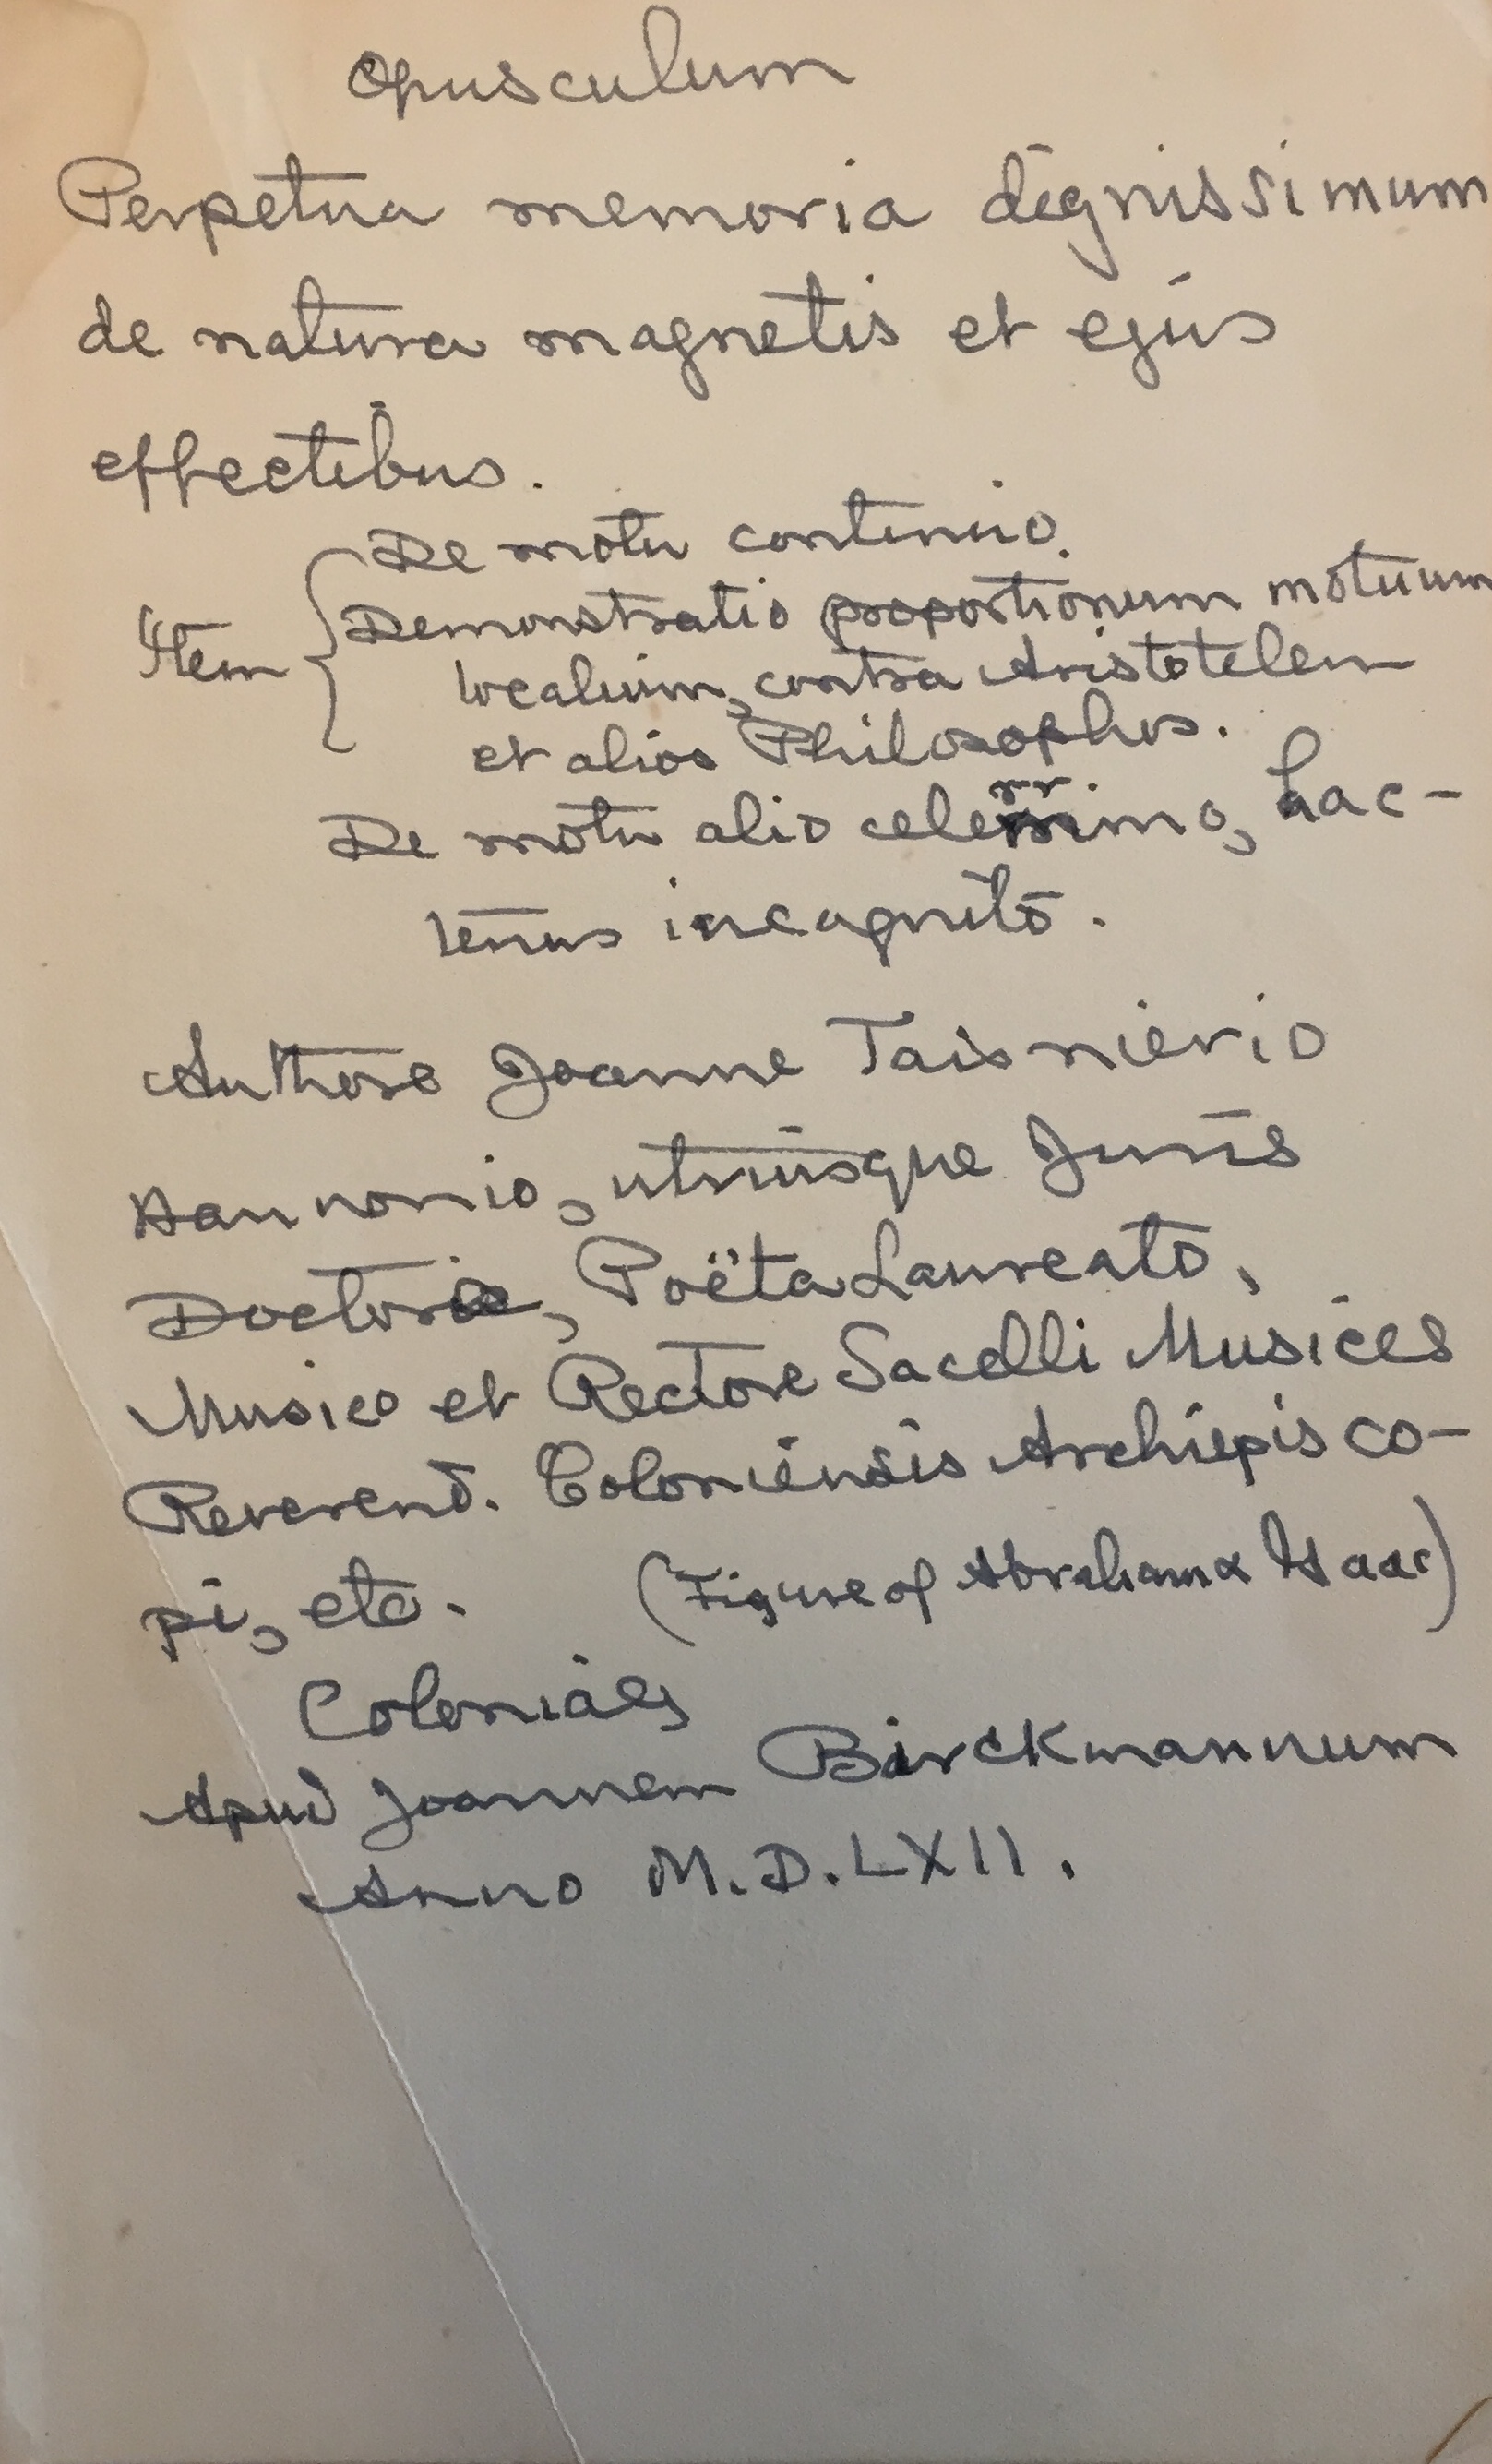 Opusculum
Perpetua memoria dignissimum
de natura magnetis et ejus
effectibus.
De motu continuo.
Item { Demonstratio proportionum motuum
localium, contra Aristotelem
et alios Philosophos.
De motu alio celerrimo, hac-
tenus incognito.
Authore Joanne Taisnierio
Hannonio, utriusque Juris
Doctore, Poëta Laureato,
Musico et Rectore Sacelli Musices
Reverend. Coloniensis Archiepisco-
pi, etc. (Figure of Abraham & Isaac)
Coloniae,
Apud Joannem Birckmannum
Anno M.D.LXII.